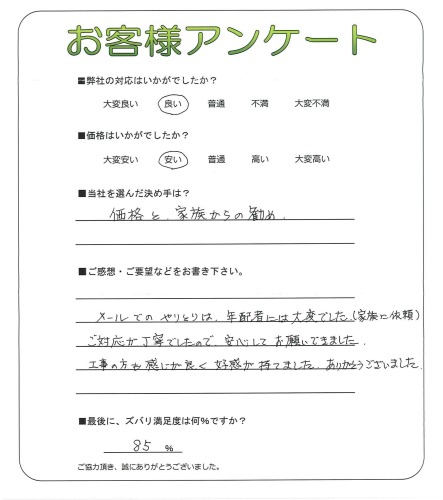 お客様アンケート
■弊社の対応はいかがでしたか?
大変良い 良い 普通 不満 大変不満
■価格はいかがでしたか?
大変安い 安い 普通 高い 大変高い
■当社を選んだ決め手は?
価格と、家族からの勧め.
■ご感想・ご要望などをお書き下さい。
メールでのやりとりは、年配者には大変でした(家族に依頼)
ご対応が丁寧でしたので、安心してお願いできました.
工事の方も感じが良く好感が持てました. ありがとうございました.
■最後に、ズバリ満足度は何%ですか?
85 %
ご協力頂き、誠にありがとうございました。